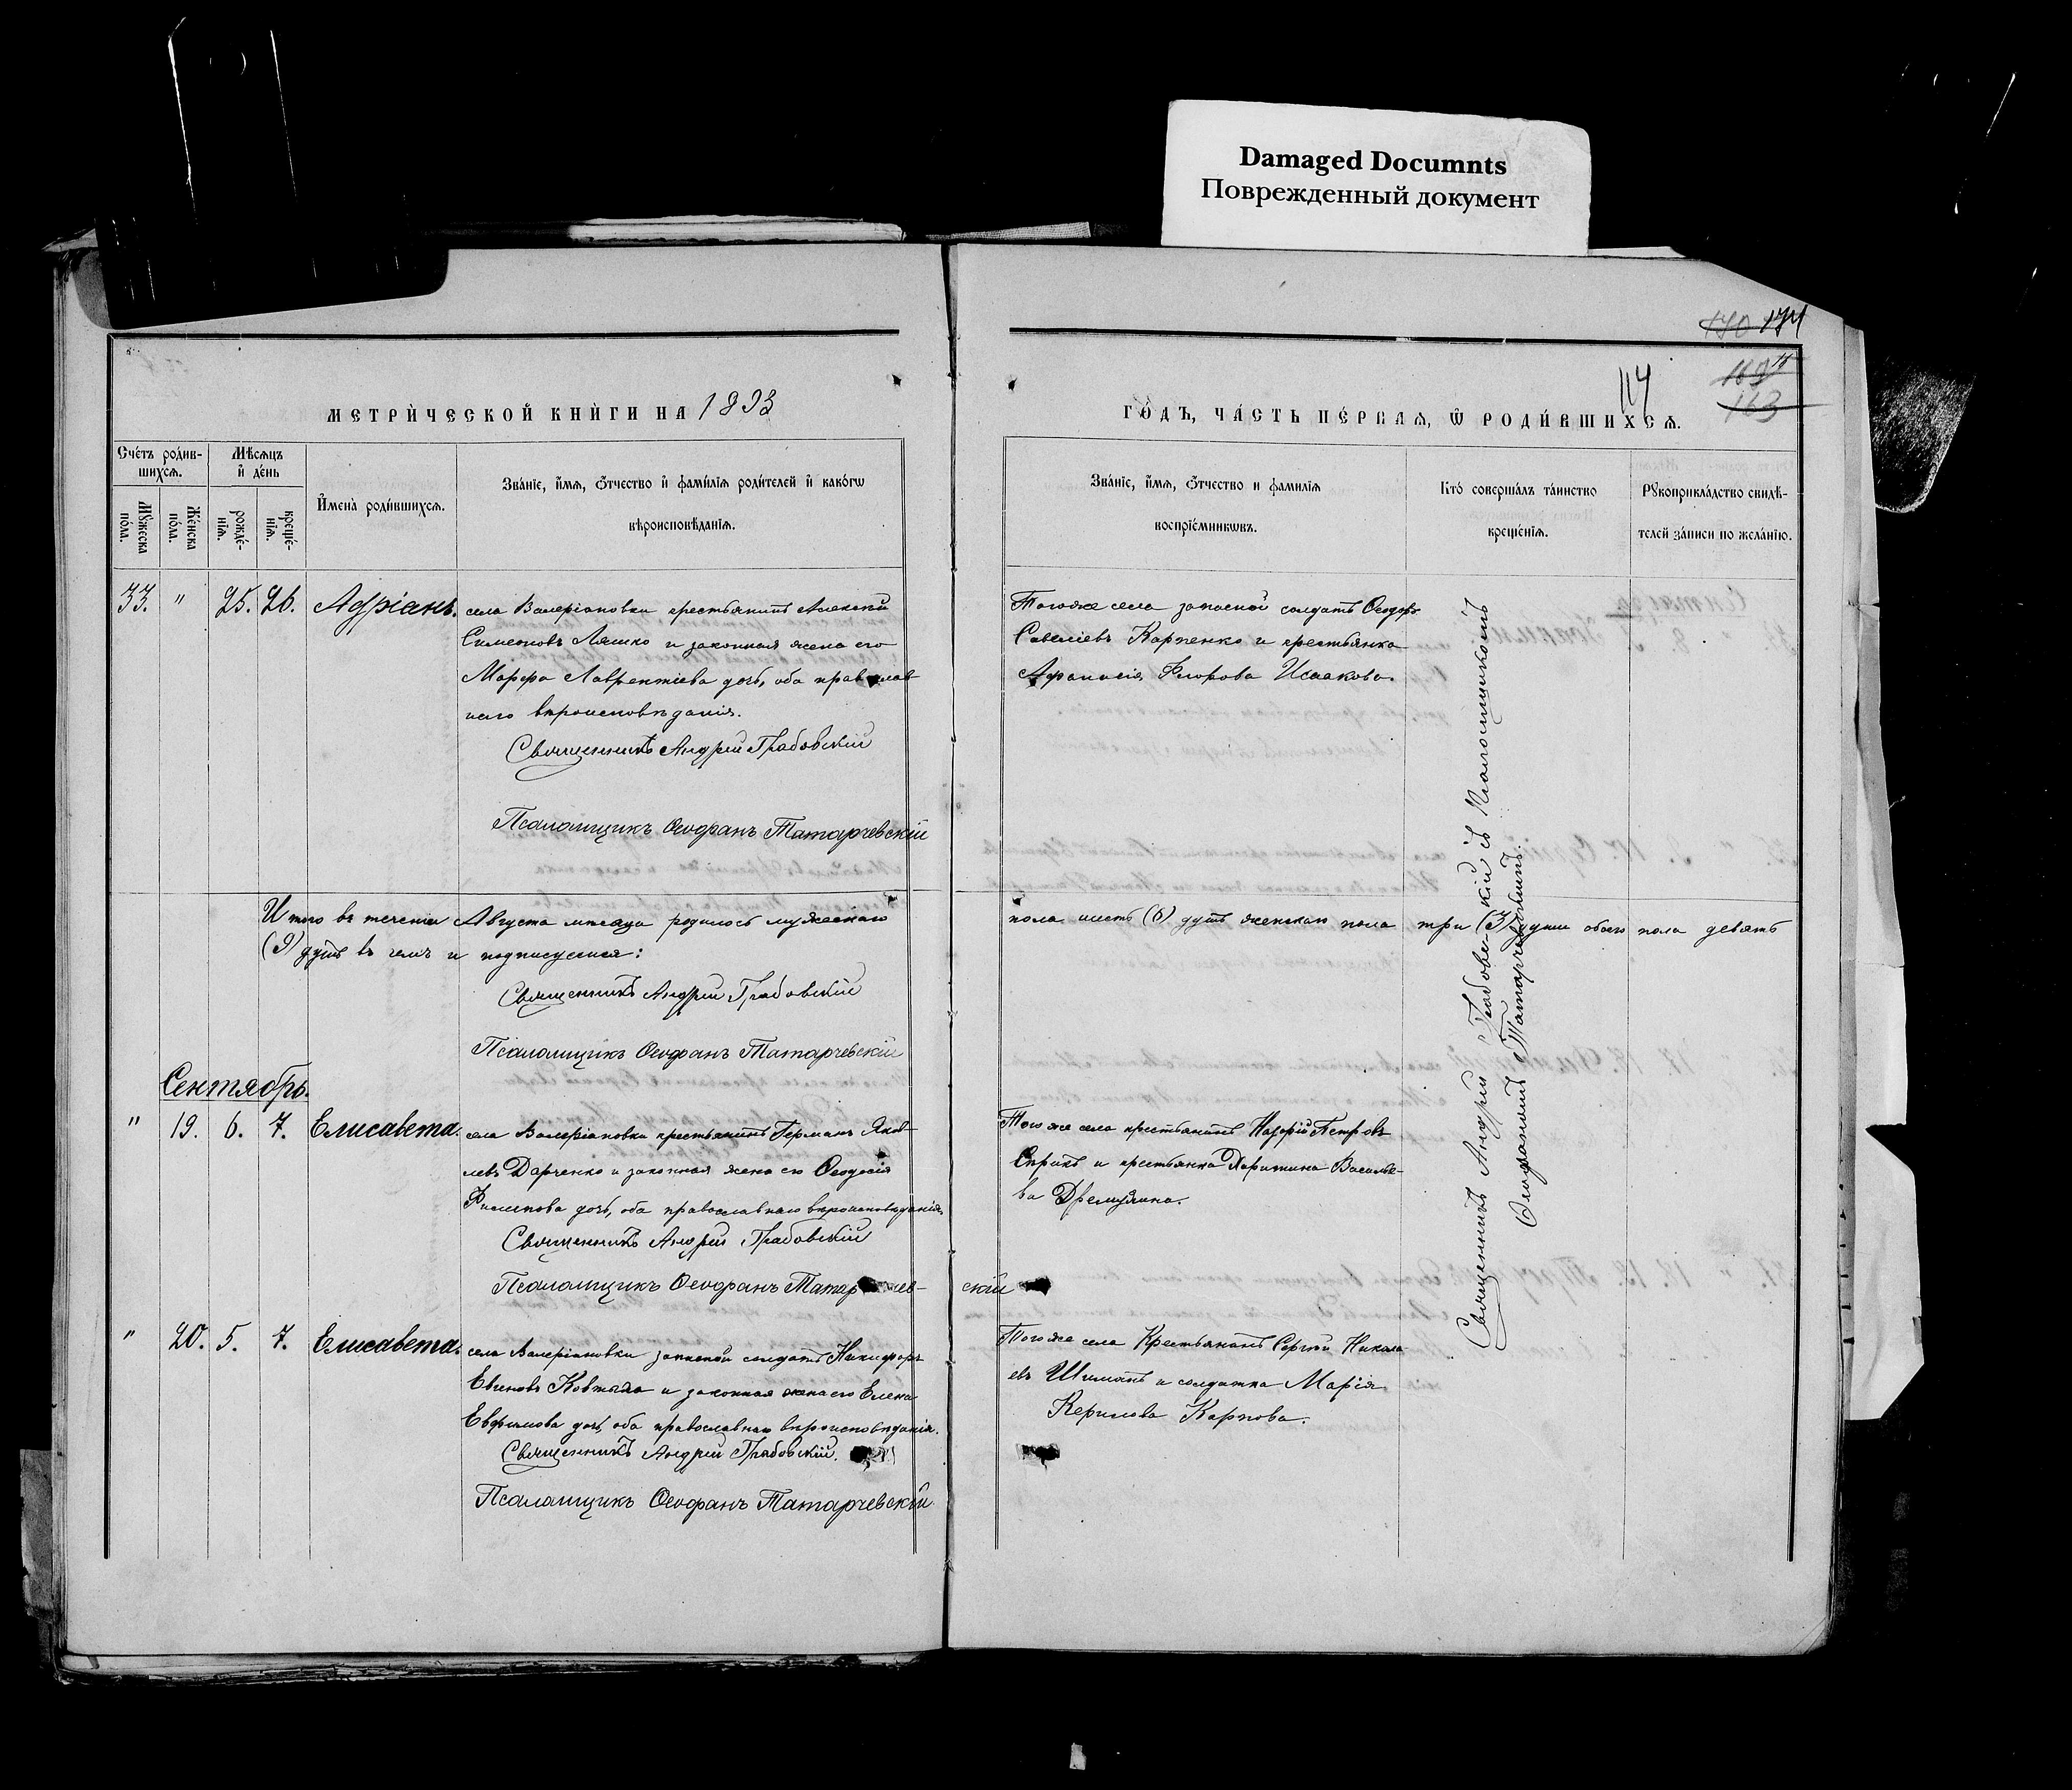 Damaged Documnts
Поврежденный документ
170 174
169
163
114
МЕТРИ́ЧЕСКОЙ КНИ́ГИ НА 1893
ГО́ДЪ, ЧА́СТЬ ПЕ́РВАЯ, Ѿ РОДИ́ВШИХСѦ.
Сче́тъ роди́в-
шихсѧ.
Мꙋ́жеска по́ла.
Же́нска по́ла.
Мѣ́сѧцъ
и҆ де́нь
рожде́-
нїѧ.
креще́-
нїѧ.
И҆мена̀ роди́вшихсѧ.
Зва́нїе, и҆́мѧ, ѻ҆́тчество и҆ фами́лїѧ роди́телей и҆ како́гѡ
вѣроисповѣ́данїѧ.
Зва́нїе, и҆́мѧ, ѻ҆́тчество и фами́лїѧ
воспрїе́мникѡвъ.
Кто̀ соверша́лъ та́инство
креще́нїѧ.
Рꙋкоприкла́дство свидѣ́-
телей за́писи по жела́нїю.
33. " 25. 26. Адріанъ.
села Валеріановки крестьянинъ Алексѣй
Симеоновъ Ляшко и законная жена его
Марфа Лаврентіева дочь, оба православ-
наго вѣроисповѣданія.
Священникъ Андрей Грабовскій
Псаломщикъ Ѳеофанъ Татарчевскій
Того же села запасной солдатъ Ѳеодоръ
Савеліевъ Карпенко и крестьянка
Афанасія Флорова Исакова.
Итого въ теченіи Августа мѣсяца родилось мужескаго
пола шесть (6) душъ женскаго пола три (3) души обоего пола девять
(9) душъ въ чемъ и подписуемся:
Священникъ Андрей Грабовскій
Псаломщикъ Ѳеофанъ Татарчевскій
Сентябрь.
" 19. 6. 7. Елисавета.
села Валеріановки крестьянинъ Германъ Яков-
левъ Дарченко и законная жена его Ѳеодосія
Филипова дочь, оба православнаго вѣроисповѣданія
Священникъ Андрей Грабовскій
Псаломщикъ Ѳеофанъ Татарчев-
скій
Того же села крестьянинъ Назорій Петровъ
Сприкъ и крестьянка Харитина Василье-
ва Дремлюина.
" 20. 5. 7. Елисавета.
села Валеріановки запасной солдатъ Никифоръ
Евгеновъ Ковтыха и законная жена его Елена
Евфимова дочь, оба православнаго вѣроисповѣданія.
Священникъ Андрей Грабовскій.
Псаломщикъ Ѳеофанъ Татарчевскій
Того же села Крестьянинъ Сергѣй Никола
евъ Шиманъ и солдатка Марія
Керилова Карпова.
Священникъ Андрей Грабовскій съ Псаломщикомъ
Ѳеофаномъ Татарчевскимъ.